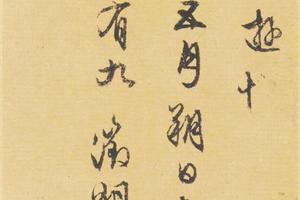 遊十
五月朔日
有九 徵明